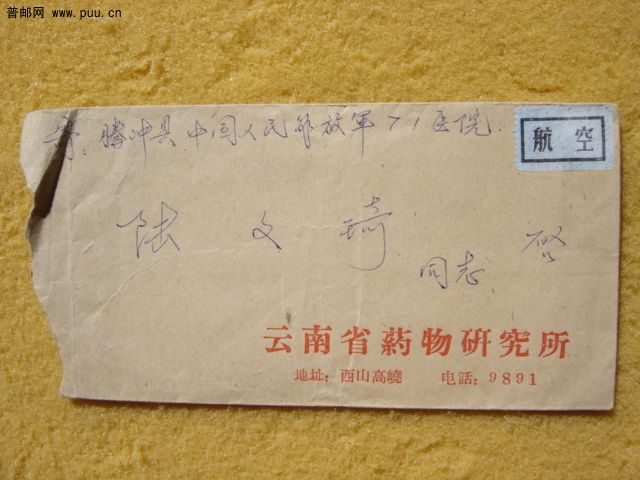 普邮网 www.puu.cn
寄：腾冲县 中国人民解放軍71医院
航空
陆文琦
同志 啓
云南省葯物研究所
地址：西山高嶢 电話：9891